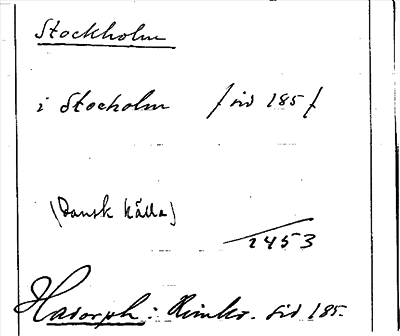 Stockholm
i Stocholm /sid 185/
(Dansk källa)
1453
Hadorph: Rimkr. sid 185.